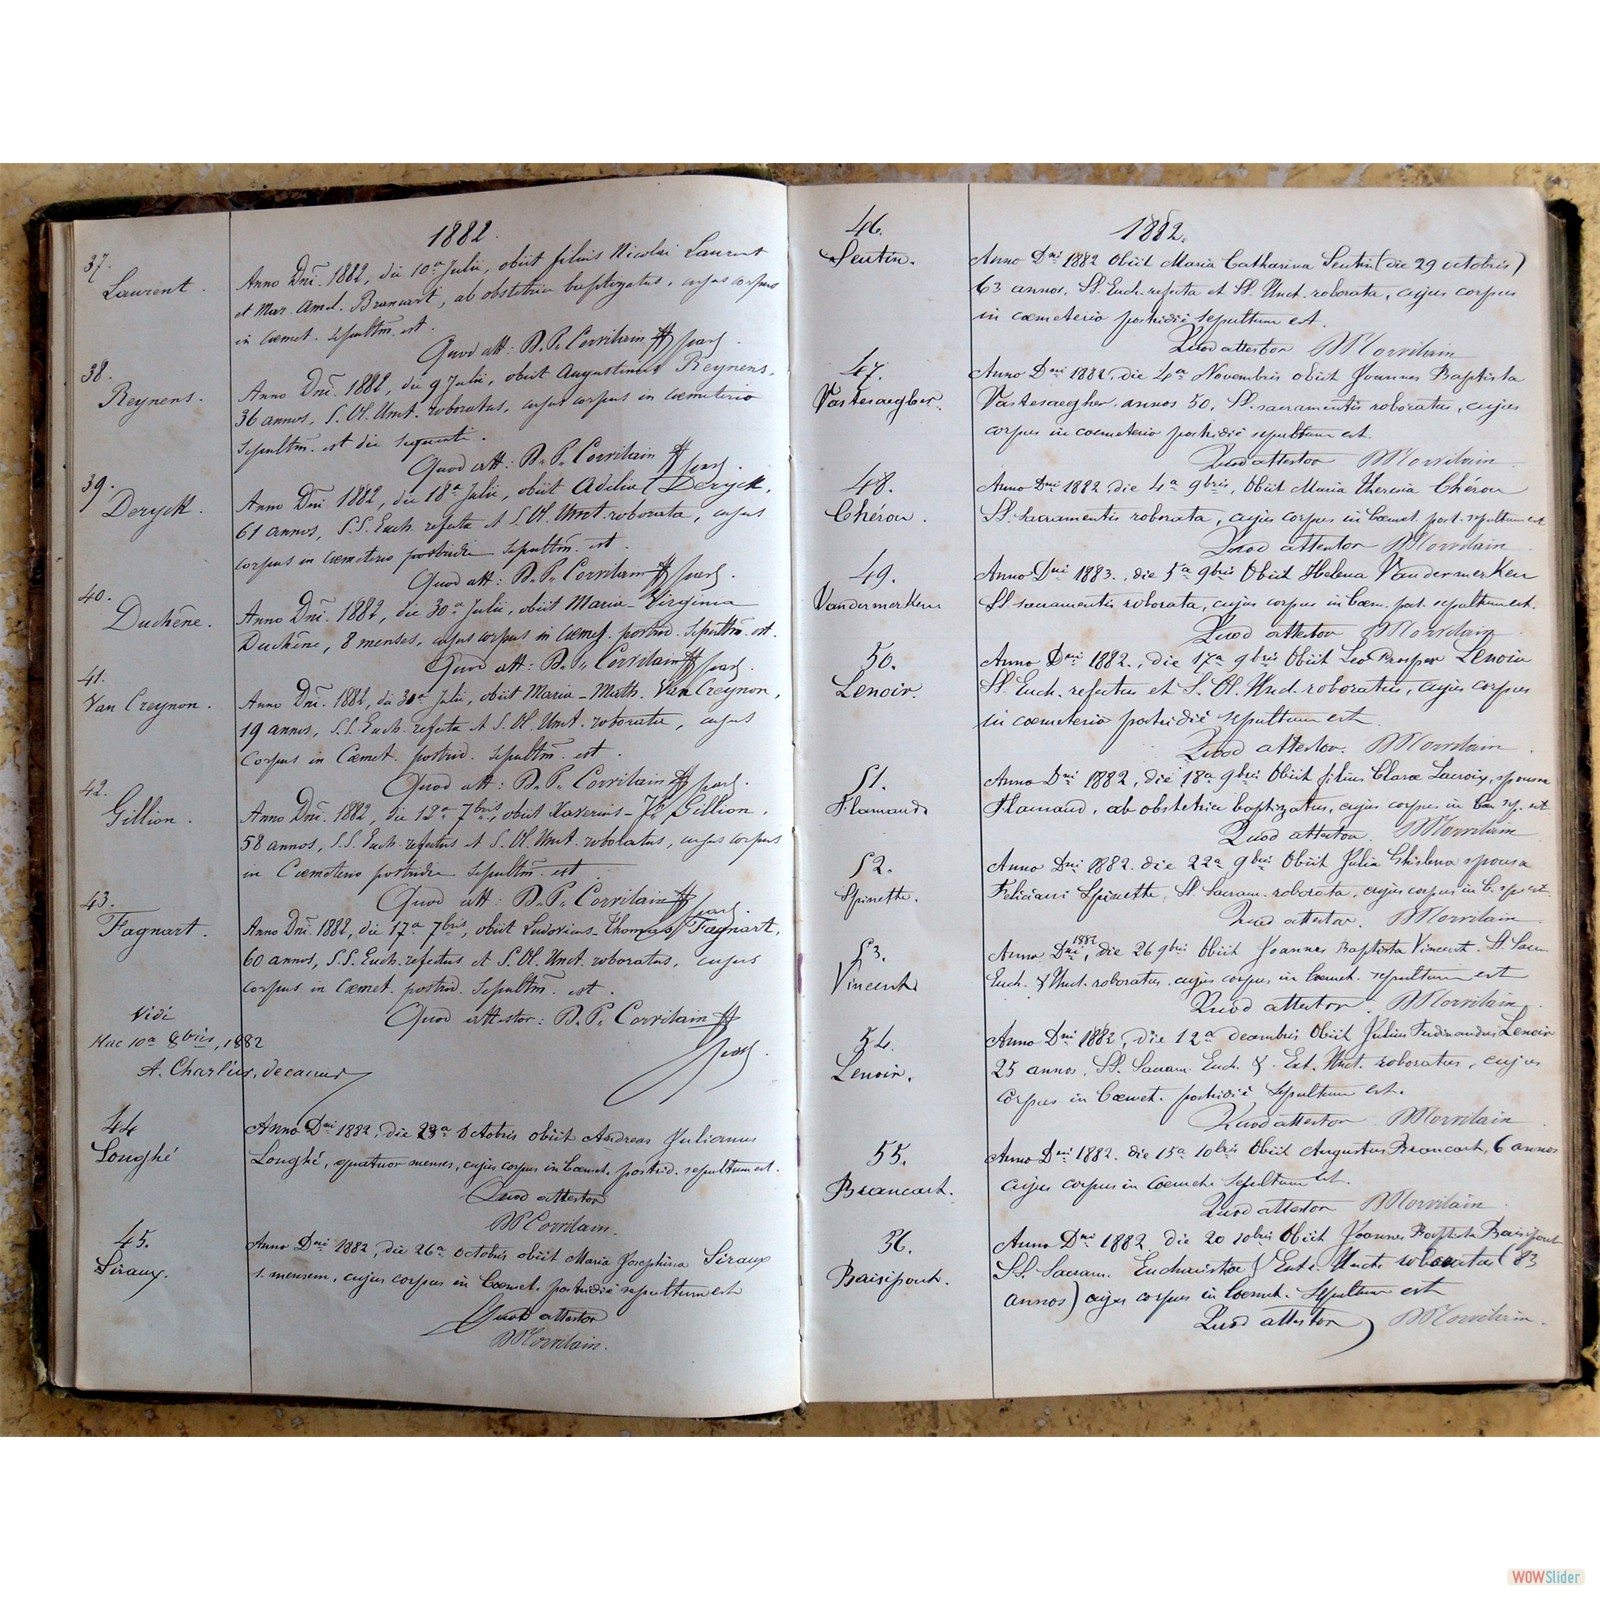 1882.
37.
Laurent.
Anno Dni. 1882, die 10a Julii, obiit filius Nicolai Laurent
et Mar. Amel. Brancart, ab obstetrice baptizatus, cujus corpus
in cœmet. sepultm. est.
Quod att: D. P. Corvilain
38.
Reynens.
Anno Dni. 1882, die 9 Julii, obiit Augustinus Reynens,
36 annos, S. Ol. Unct. roboratus, cujus corpus in cœmeterio
Sepultm. est die sequenti.
Quod att: D. P. Corvilain
39.
Deryck.
Anno Dni. 1882, die 18a Julii, obiit Adelia Deryck,
61 annos, S.S. Euch. refecta et S. Ol. Unct. roborata, cujus
corpus in cœmeterio postridie sepultm. est.
Quod att: D. P. Corvilain
40.
Duchêne.
Anno Dni. 1882, die 30a Julii, obiit Maria-Virginia
Duchêne, 8 menses, cujus corpus in cœmet. postrid. sepultm. est.
Quod att: D. P. Corvilain
41.
Van Creynon.
Anno Dni. 1882, die 30a Julii, obiit Maria-Math. Van Creynon,
19 annos, S.S. Euch. refecta et S. Ol. Unct. roborata, cujus
Corpus in Cœmet. postrid. sepultm. est.
Quod att: D. P. Corvilain
42.
Gillion.
Anno Dni. 1882, die 12a 7bris, obiit Xaverius-Jh. Gillion,
58 annos, S.S. Euch. refectus et S. Ol. Unct. roboratus, cujus corpus
in Cœmeterio postridie sepultm. est.
Quod att: D. P. Corvilain
43.
Fagnart.
Anno Dni. 1882, die 17a 7bris, obiit Ludovicus-Thomas Fagnart,
60 annos, S.S. Euch. refectus et S. Ol. Unct. roboratus, cujus
corpus in Cœmet. postrid. sepultm. est.
Quod attestor: D. P. Corvilain
Vidi
Hac 10a 8bris, 1882
A. Charlier, decanus
44
Longhé
Anno Dni 1882, die 23a Octobris obiit Andreas Julianus
Longhé, quatuor menses, cujus corpus in Cœmet. postrid. sepultum est.
Quod attestor
DP Corvilain.
45.
Siraux.
Anno Dni 1882, die 26a Octobris obiit Maria Josephina Siraux
1. mensem, cujus corpus in Cœmet. postridie sepultum est
Quod attestor
DP Corvilain.
1882.
46.
Seutin.
Anno Dni 1882 Obiit Maria Catharina Seutin (die 29 octobris)
63 annos, SS. Euch. refecta et SS. Unct. roborata, cujus corpus
in cœmeterio postridie sepultum est.
Quod attestor DP Corvilain
47.
Vastesaegher.
Anno Dni 1882, die 4a Novembris obiit Joannes Baptista
Vastesaegher, annos 50, SS. sacramentis roboratus, cujus
corpus in cœmeterio postridie sepultum est.
Quod attestor DP Corvilain
48.
Chérou.
Anno Dni 1882, die 4a 9bris, Obiit Maria Theresia Chérou
SS. Sacramentis roborata, cujus corpus in Cœmet. post. sepultum est
Quod attestor DP Corvilain
49.
Vandermerken
Anno Dni 1883., die 5a 9bris Obiit Helena Vandermerken
SS. sacramentis roborata, cujus corpus in Cœm. post. sepultum est.
Quod attestor DP Corvilain
50.
Lenoir.
Anno Dni 1882., die 17a 9bris Obiit Leo Prosper Lenoir
SS. Euch. refectus et S. Ol. Unct. roboratus, cujus corpus
in cœmeterio postridie sepultum est.
Quod attestor. DP Corvilain.
51.
Flamand
Anno Dni 1882, die 18a 9bris Obiit filius Claræ Lacroix, sponsæ
Flamand, ab obstetrice baptizatus, cujus corpus in Cœm. sep. est
Quod attestor. DP Corvilain
52.
Spinette.
Anno Dni 1882. die 22a 9bris Obiit Julia Ghislena sponsa
Feliciani Spinette, SS. Sacram. roborata, cujus corpus in C. sep. est.
Quod attestor. DP Corvilain.
53.
Vincent
Anno Dni 1882, die 26 9bris Obiit Joannes Baptista Vincent. SS Sacr.
Euch. & Unct. roboratus, cujus corpus in Cœmet. sepultum est
Quod attestor. DP Corvilain.
54.
Lenoir.
Anno Dni 1882, die 12a decembris Obiit Julius Ferdinandus Lenoir
25 annos, SS. Sacram. Euch. & Ext. Unct. roboratus, cujus
Corpus in Cœmet. postridie Sepultum est.
Quod attestor DP Corvilain
55.
Brancart.
Anno Dni 1882. die 15a 10bris Obiit Augustus Brancart, 6 annos
cujus corpus in Cœmet. Sepultum est.
Quod attestor DP Corvilain
56.
Baisipont.
Anno Dni 1882, die 20 10bris Obiit Joannes Baptista Baisipont
SS. Sacram. Eucharistiæ & Ext. Unct. roboratus (83
annos) cujus corpus in Cœmet. Sepultum est
Quod attestor DP Corvilain.
WOWSlider